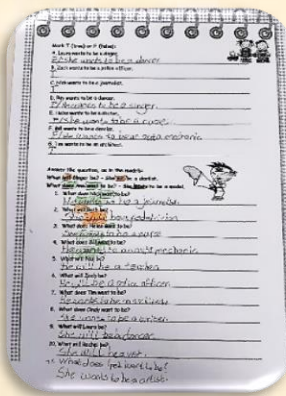 Mark T (true) or F (false):
A. Laura wants to be a singer.
F/ she wants to be a dancer
B. Zach wants to be a police officer.
T
C. wants to be a journalist.
T
D. Ray wants to be a dancer.
F/ He wants to be a singer.
E. wants to be a doctor.
F/ she wants to be a nurse.
F. Bill wants to be a dentist.
F/ He wants to be an auto mechanic
G. Tim wants to be an architect.
T
Answer the question, as in the models:
What will Roger be? - He will be a dentist.
What does Ann want to be? - She wants to be a model.
1. What does want to be?
to be a journalist
2. What will be?
She will be a pediatrician
3. What does want to be?
She wants to be a nurse
4. What does Bill want to be?
He wants to an auto mechanic
5. What will be?
He will be a teacher
6. What will Zach be?
He will be a police officer
7. What does Tim want to be?
He wants to be an architect
8. What does Cindy want to be?
She wants to be a writer
9. What will Laura be?
She will be a dancer
10. What will Rachel be?
She will be a vet.
What does want to be?
She wants to be an artist.